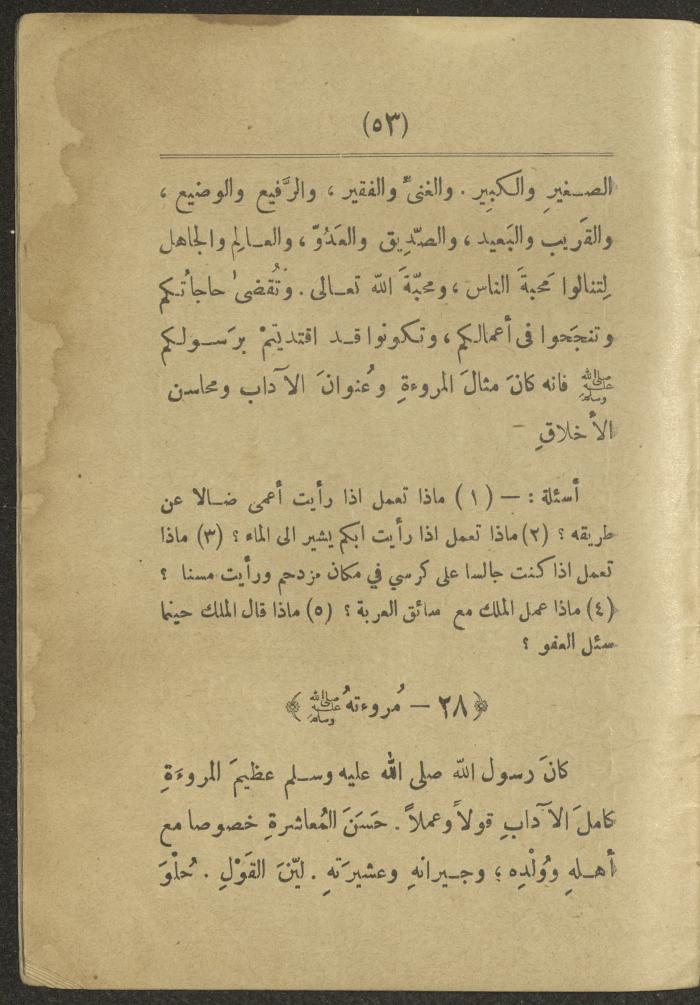 (٥٣)
الصغيرِ والكبِير . والغنىِّ والفقير ، والرَّفيع والوضيع ،
والقَريب والبَعيد ، والصّدِيق والعَدُوّ ، والعالِم والجاهل
لِتنالوا مَحبةَ الناس ، ومحبّةَ اللّه تعالى . وتُقضىٰ حاجاتُكم
وتنجَحوا فى أعمالكم ، وتكونوا قد اقتديتمْ برَسولكم
ﷺ فانه كانَ مثالَ المروءةِ وعُنوانَ الآداب ومحاسن
الأخلاقِ –
أسئلة : — (١) ماذا تعمل اذا رأيت أعمى ضالا عن
طريقه ؟ (٢) ماذا تعمل اذا رأيت ابكم يشير الى الماء ؟ (٣) ماذا
تعمل اذا كنت جالسا على كرسي في مكان مزدحم ورأيت مسنا ؟
(٤) ماذا عمل الملك مع سائق العربة ؟ (٥) ماذا قال الملك حينما
سئل العفو ؟
﴿ ٢٨ — مُروءتهُ ﷺ ﴾
كانَ رسول اللّه صلى الله عليه وسلم عظيمَ المروءَةِ
كاملَ الآدابِ قولاً وعملاً . حَسَنَ المُعاشرةِ خصوصا مع
أهلهِ ووُلْدِه ؛ وجيرانهِ وعشيرَتهِ . ليّنَ القَوْلِ . حُلْوَ